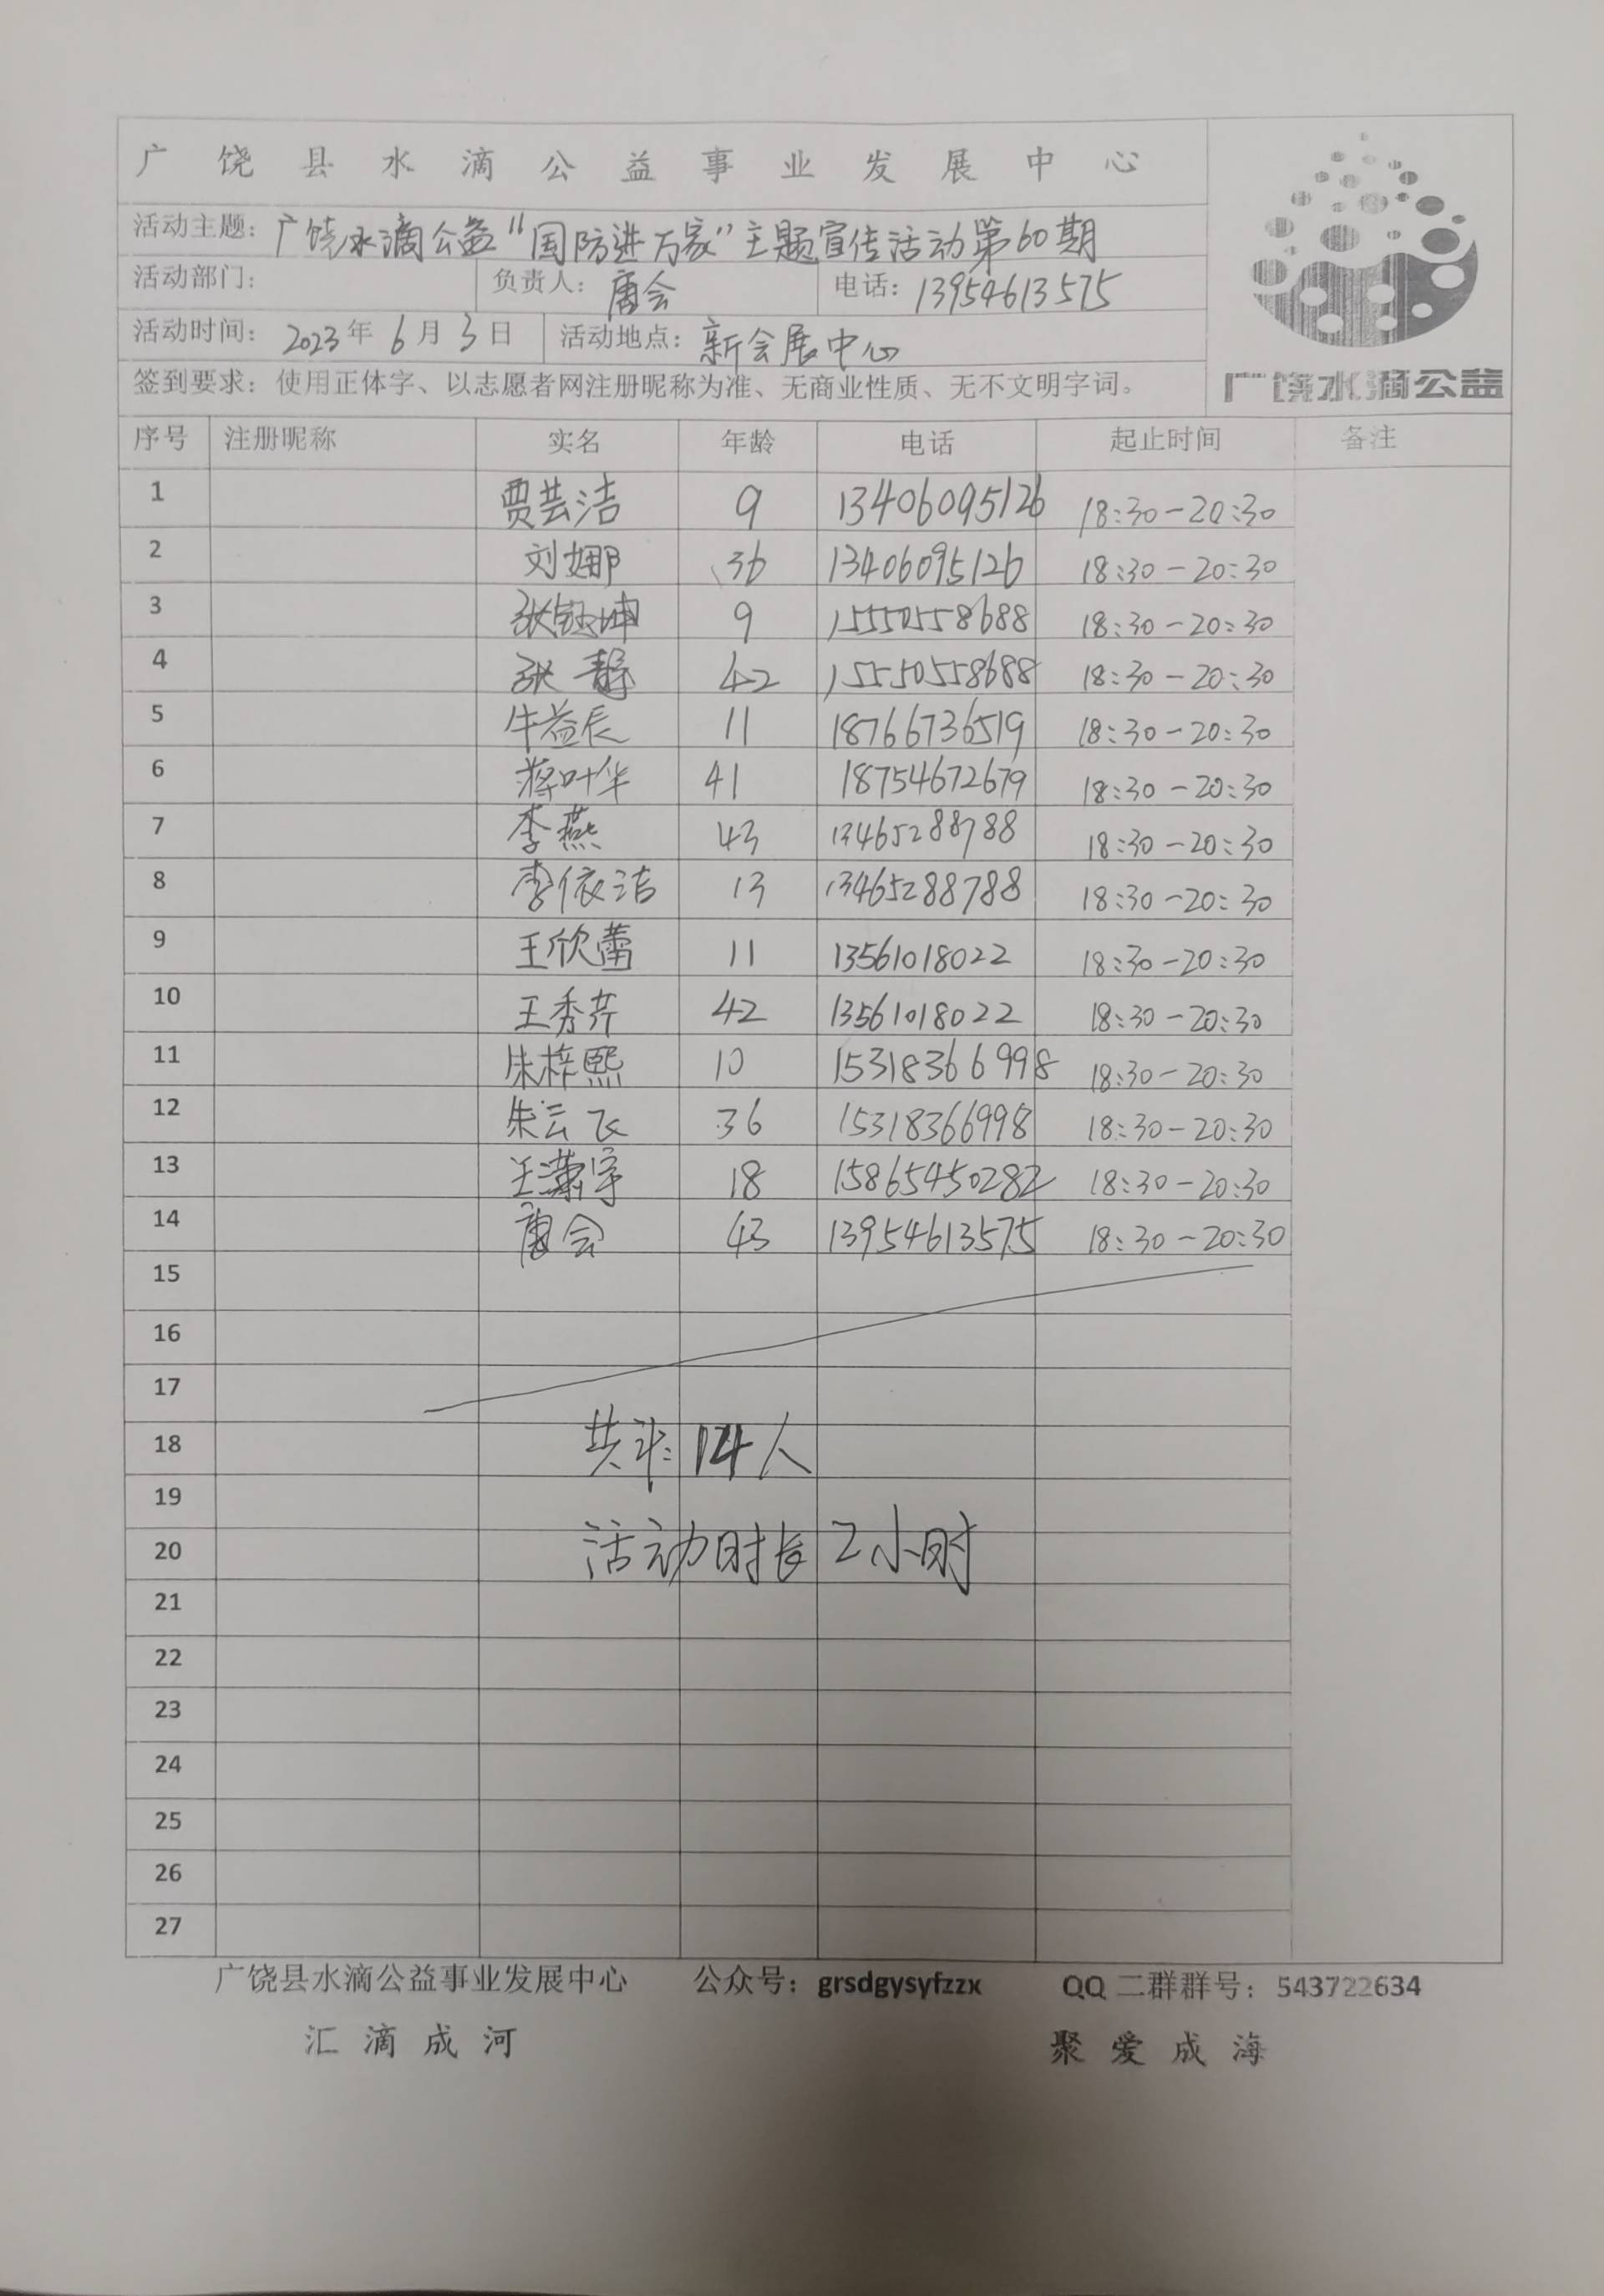 广饶县水滴公益事业发展中心
活动主题：广饶水滴公益“国防进万家”主题宣传活动第60期
活动部门： 负责人：唐会 电话：13954613575
活动时间：2023年6月3日 活动地点：新会展中心
签到要求：使用正体字、以志愿者网注册昵称为准、无商业性质、无不文明字词。
广饶水滴公益
序号 注册昵称 实名 年龄 电话 起止时间 备注
1 贾芸洁 9 13406095126 18:30-20:30
2 刘娜 36 13406095126 18:30-20:30
3 张钰坤 9 15550558688 18:30-20:30
4 张静 42 15550558688 18:30-20:30
5 牛益辰 11 18766736519 18:30-20:30
6 蒋叶华 41 18754672679 18:30-20:30
7 李燕 43 13465288788 18:30-20:30
8 李依洁 13 13465288788 18:30-20:30
9 王欣蕾 11 13561018022 18:30-20:30
10 王秀芹 42 13561018022 18:30-20:30
11 朱梓熙 10 15318366998 18:30-20:30
12 朱云飞 36 15318366998 18:30-20:30
13 王潇宇 18 15865450282 18:30-20:30
14 唐会 43 13954613575 18:30-20:30
15
16
17
18 共计：14人
19
20 活动时长2小时
21
22
23
24
25
26
27
广饶县水滴公益事业发展中心 公众号：grsdgysyfzzx QQ二群群号：543722634
汇滴成河 聚爱成海